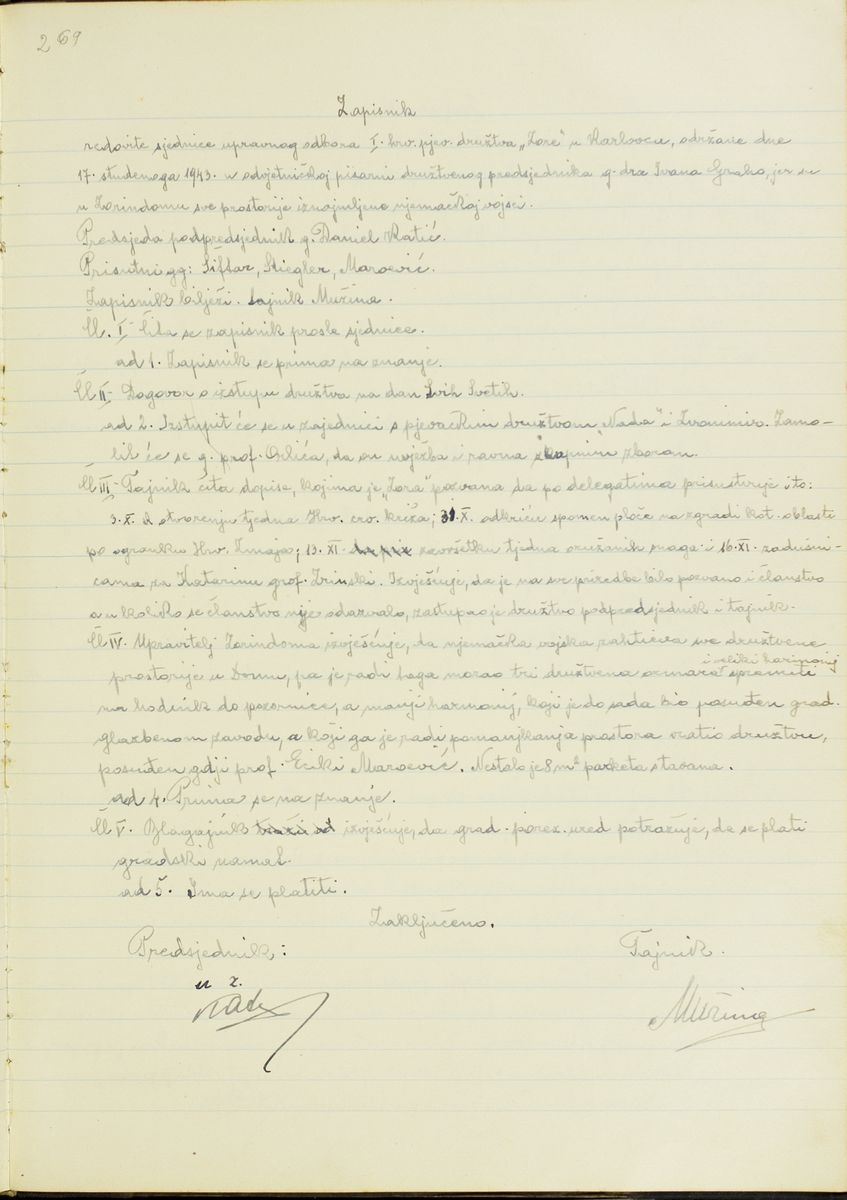 269
Zapisnik
redovite sjednice upravnog odbora I. hrv. pjev. družtva „Zore“ u Karlovcu, održane dne
17. studenoga 1943. u odvjetničkoj pisarni družtvenog predsjednika g. dra Ivana Gruho, jer su
u Zorindomu sve prostorije iznajmljene njemačkoj vojsci.
Predsjeda podpredsjednik g. Daniel Katić.
Prisutni gg: Šiftar, Stiegler, Maroević.
Zapisnik bilježi. tajnik Mužina.
Čl. I. Čita se zapisnik prosle sjednice.
ad 1. Zapisnik se prima na znanje.
Čl II. Dogovor o istupu družtva na dan Svih Svetih.
ad 2. Izstupit će se u zajednici s pjevačkim družtvom „Nada“ i Zvonimir. Zamo-
lit će se g. prof. Orlića, da su uvježba i ravna skupnim zborom.
Čl III. Tajnik čita dopise, kojima je „Zora“ pozvana da po delegatima prisustvuje i to:
3. X. otvorenju tjedna Hrv. crv. križa; 31. X. odkriću spomen ploče na zgradi kot. oblasti
po ogranku Hrv. Zmaja; 13. XI. završetku tjedna oružanik snaga i 16. XI. zadušni-
cama za Katarinu grof. Zrinski. Izvješćuje, da je na sve priredbe bilo pozvano i članstvo
a u koliko se članstvo nije odazvalo, zastupao je družtvo podpredsjednik i tajnik.
Čl IV. Upravitelj Zorindoma izvješćuje, da njemačka vojska zahtieva sve družtvene
prostorije u Domu, pa je radi toga morao tri družtvena ormara i veliki harmonij spremiti
na hodnik do pozornice, a manji harmonij, koji je do sada bio posuđen grad.
glazbenom zavodu, a koji ga je radi pomanjkanja prostora vratio družtvu,
posuđen gdji prof. Eciki Maroević. Nestalo je 8 m² parketa s tavana.
ad 4. Prima se na znanje.
Čl V. Blagajnik izvješćuje, da grad. porez. ured potražuje, da se plati
gradski namet.
ad 5. Ima se platiti.
Zaključeno.
Predsjednik: Tajnik.
u z.
Katić Mužina